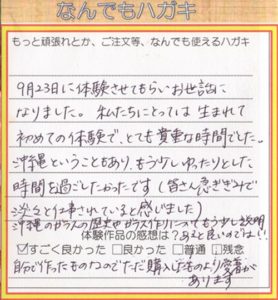 なんでもハガキ
もっと頑張れとか、ご注文等、なんでも使えるハガキ
9月23日に体験させてもらいお世話に
なりました。私たちにとっては生まれて
初めての体験で、とても貴重な時間でした。
沖縄ということもあり、もう少しゆったりとした
時間を過ごしたかったです(皆さん急ぎぎみで
淡々と仕事されていると感じました)
沖縄のガラスの歴史やガラス作りについてもう少し説明
体験作品の感想は? あると良いのでは!
☑すごく良かった □良かった □普通 □残念
自分で作ったものなのでただ購入したものより愛着が
あります